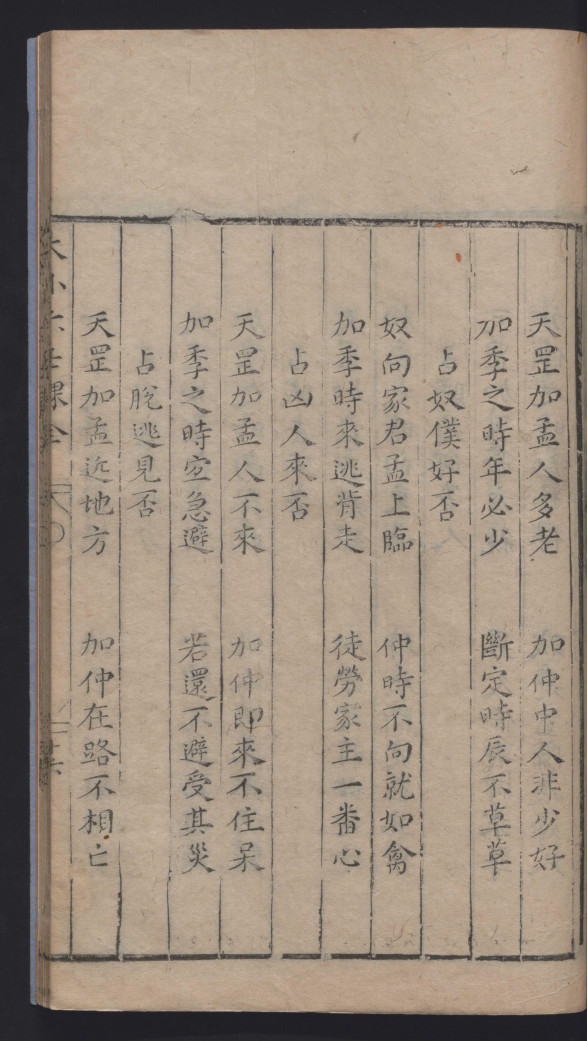 天罡加孟人多老　加仲中人非少好
加季之時年必少　斷定時辰不草草
占奴僕好否
奴向家君孟上臨　仲時不向就如禽
加季時來逃背走　徒勞家主一番心
占凶人來否
天罡加孟人不來　加仲即來不住呆
加季之時空急避　若還不避受其災
占脫逃見否
天罡加孟近地方　加仲在路不相亡
大小六壬課全